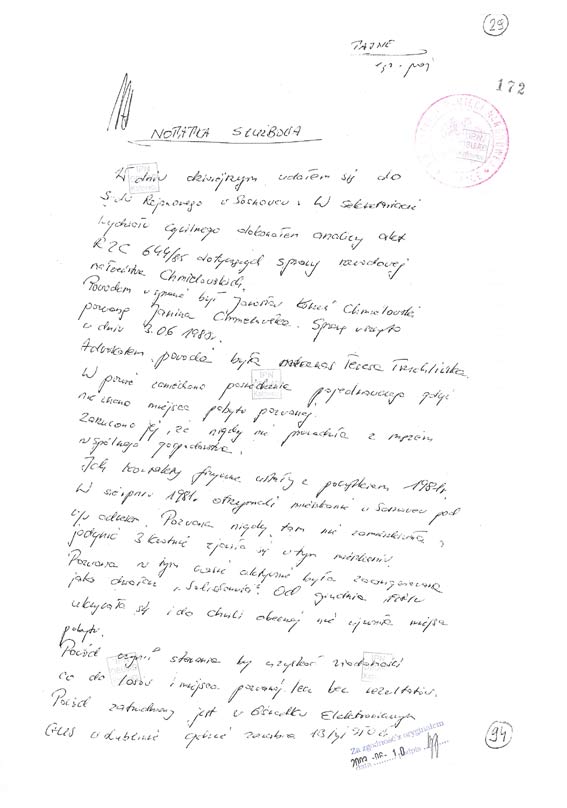 29
TAJNE
egz. poj
172
NOTATKA SŁUŻBOWA
W dniu dzisiejszym udałem się do
Sądu Rejonowego w Sosnowcu. W sekretariacie
Wydziału Cywilnego dokonałem analizy akt
R III C 644/85 dotyczących sprawy rozwodowej
małżeństwa Chmielowskich.
Powodem w sprawie był Jarosław Chmielowski
pozwaną Janina Chmielowska. Sprawę wszczęto
w dniu 3.06
Adwokatem powoda była mecenas Teresa
W pozwie zaniechano posiedzenia pojednawczego gdyż
nie znano miejsca pobytu pozwanej.
Zarzucono jej, że nigdy nie prowadziła z mężem
wspólnego gospodarstwa.
Ich kontakty fizyczne ustały z początkiem 1981r.
W sierpniu 1981r. otrzymali mieszkanie w Sosnowcu pod
w/w adresem. Pozwana nigdy tam nie zamieszkała,
jedynie 3 krotnie zjawiła się w tym mieszkaniu.
Pozwana w tym czasie aktywnie była zaangażowana
jako działacz "Solidarności". Od grudnia
ukrywała się i do chwili obecnej nie ujawniła miejsca
pobytu.
Powód czynił starania by uzyskać wiadomości
co do losów i miejsca pozwanej lecz bez rezultatów.
Powód zatrudniony jest w Ośrodku Elektronicznym
w Lublinie gdzie zarabia
Za zgodność z oryginałem
data podpis
94